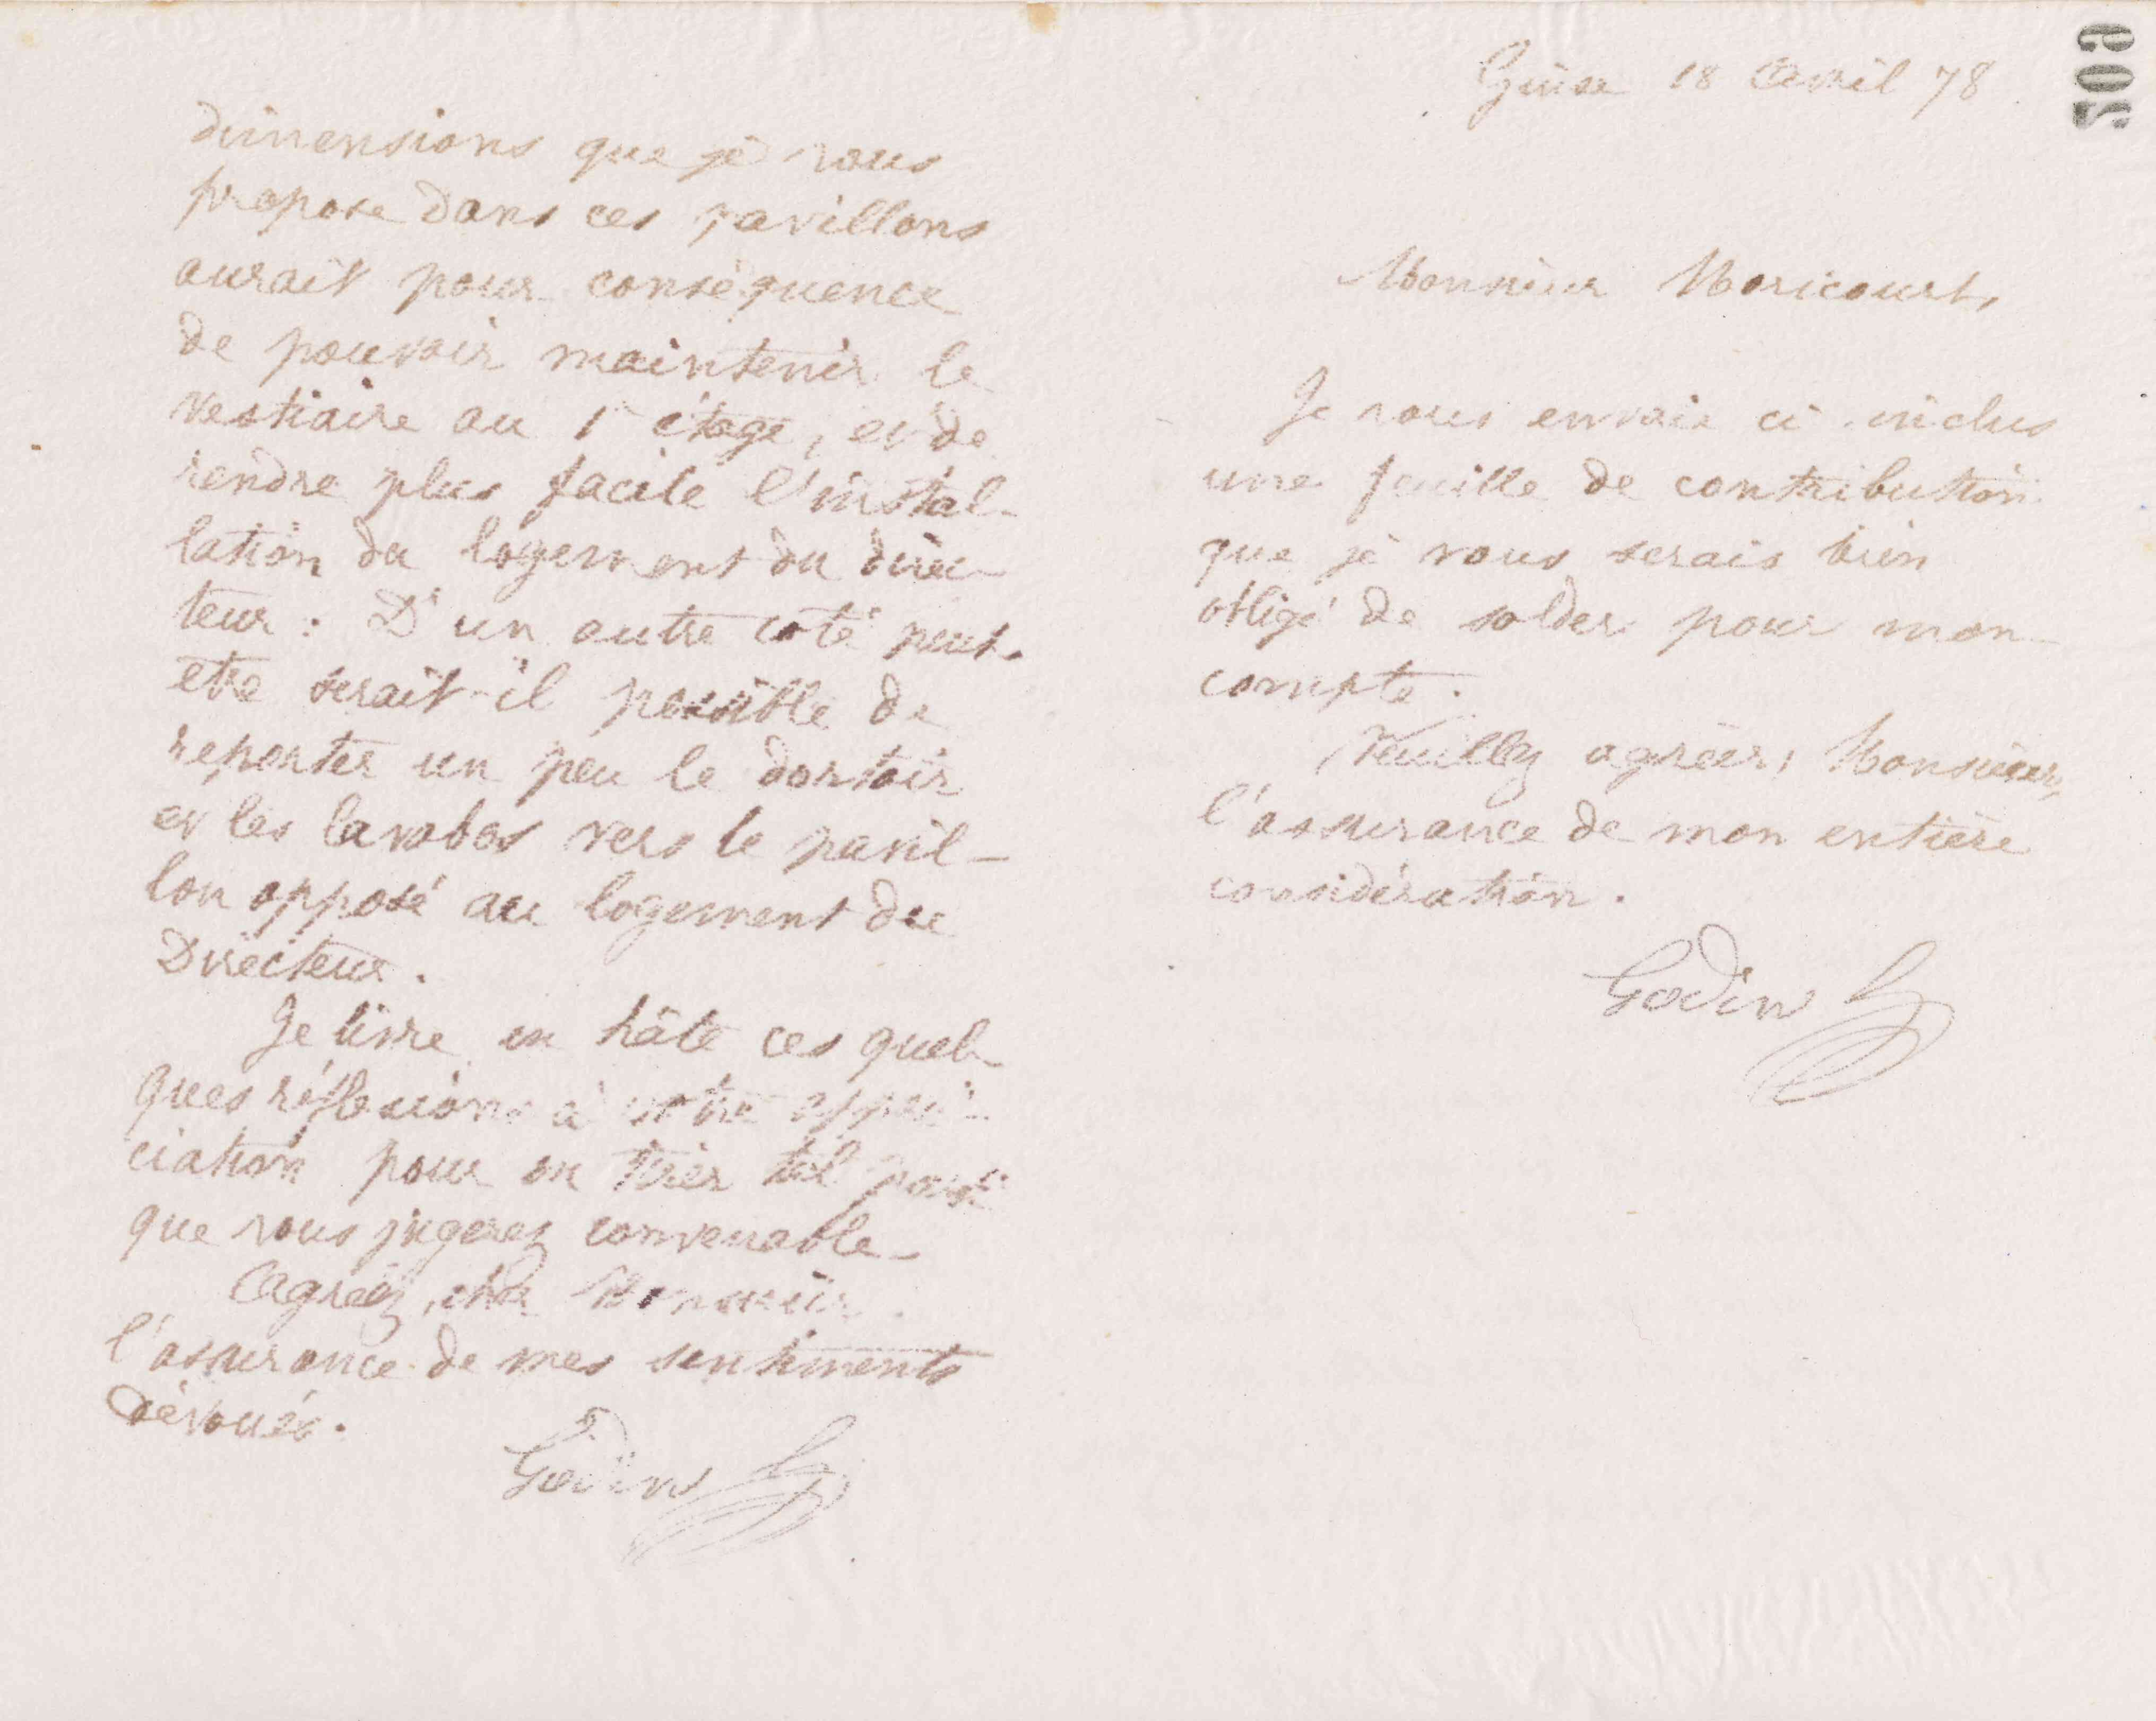 dimensions que je vous
propose dans ces pavillons
aurait pour conséquence
de pouvoir maintenir le
vestiaire au 1er étage, et de
rendre plus facile l'instal-
lation du logement du direc-
teur : D'un autre coté peut-
etre serait-il possible de
reporter un peu le dortoir
et les lavabos vers le pavil-
lon opposé au logement du
Directeur.
Je livre en hâte ces quel-
ques réflexions à votre appré-
ciation pour en tirer tel parti
que vous jugerez convenable.
Agréez, cher Monsieur
l'assurance de mes sentiments
dévoués.
Godin
509
Guise 18 Avril 78
Monsieur Moricourt,
Je vous envoie ci-inclus
une feuille de contribution
que je vous serais bien
obligé de solder pour mon
compte.
Veuillez agréer, Monsieur,
l'assurance de mon entière
considération.
Godin